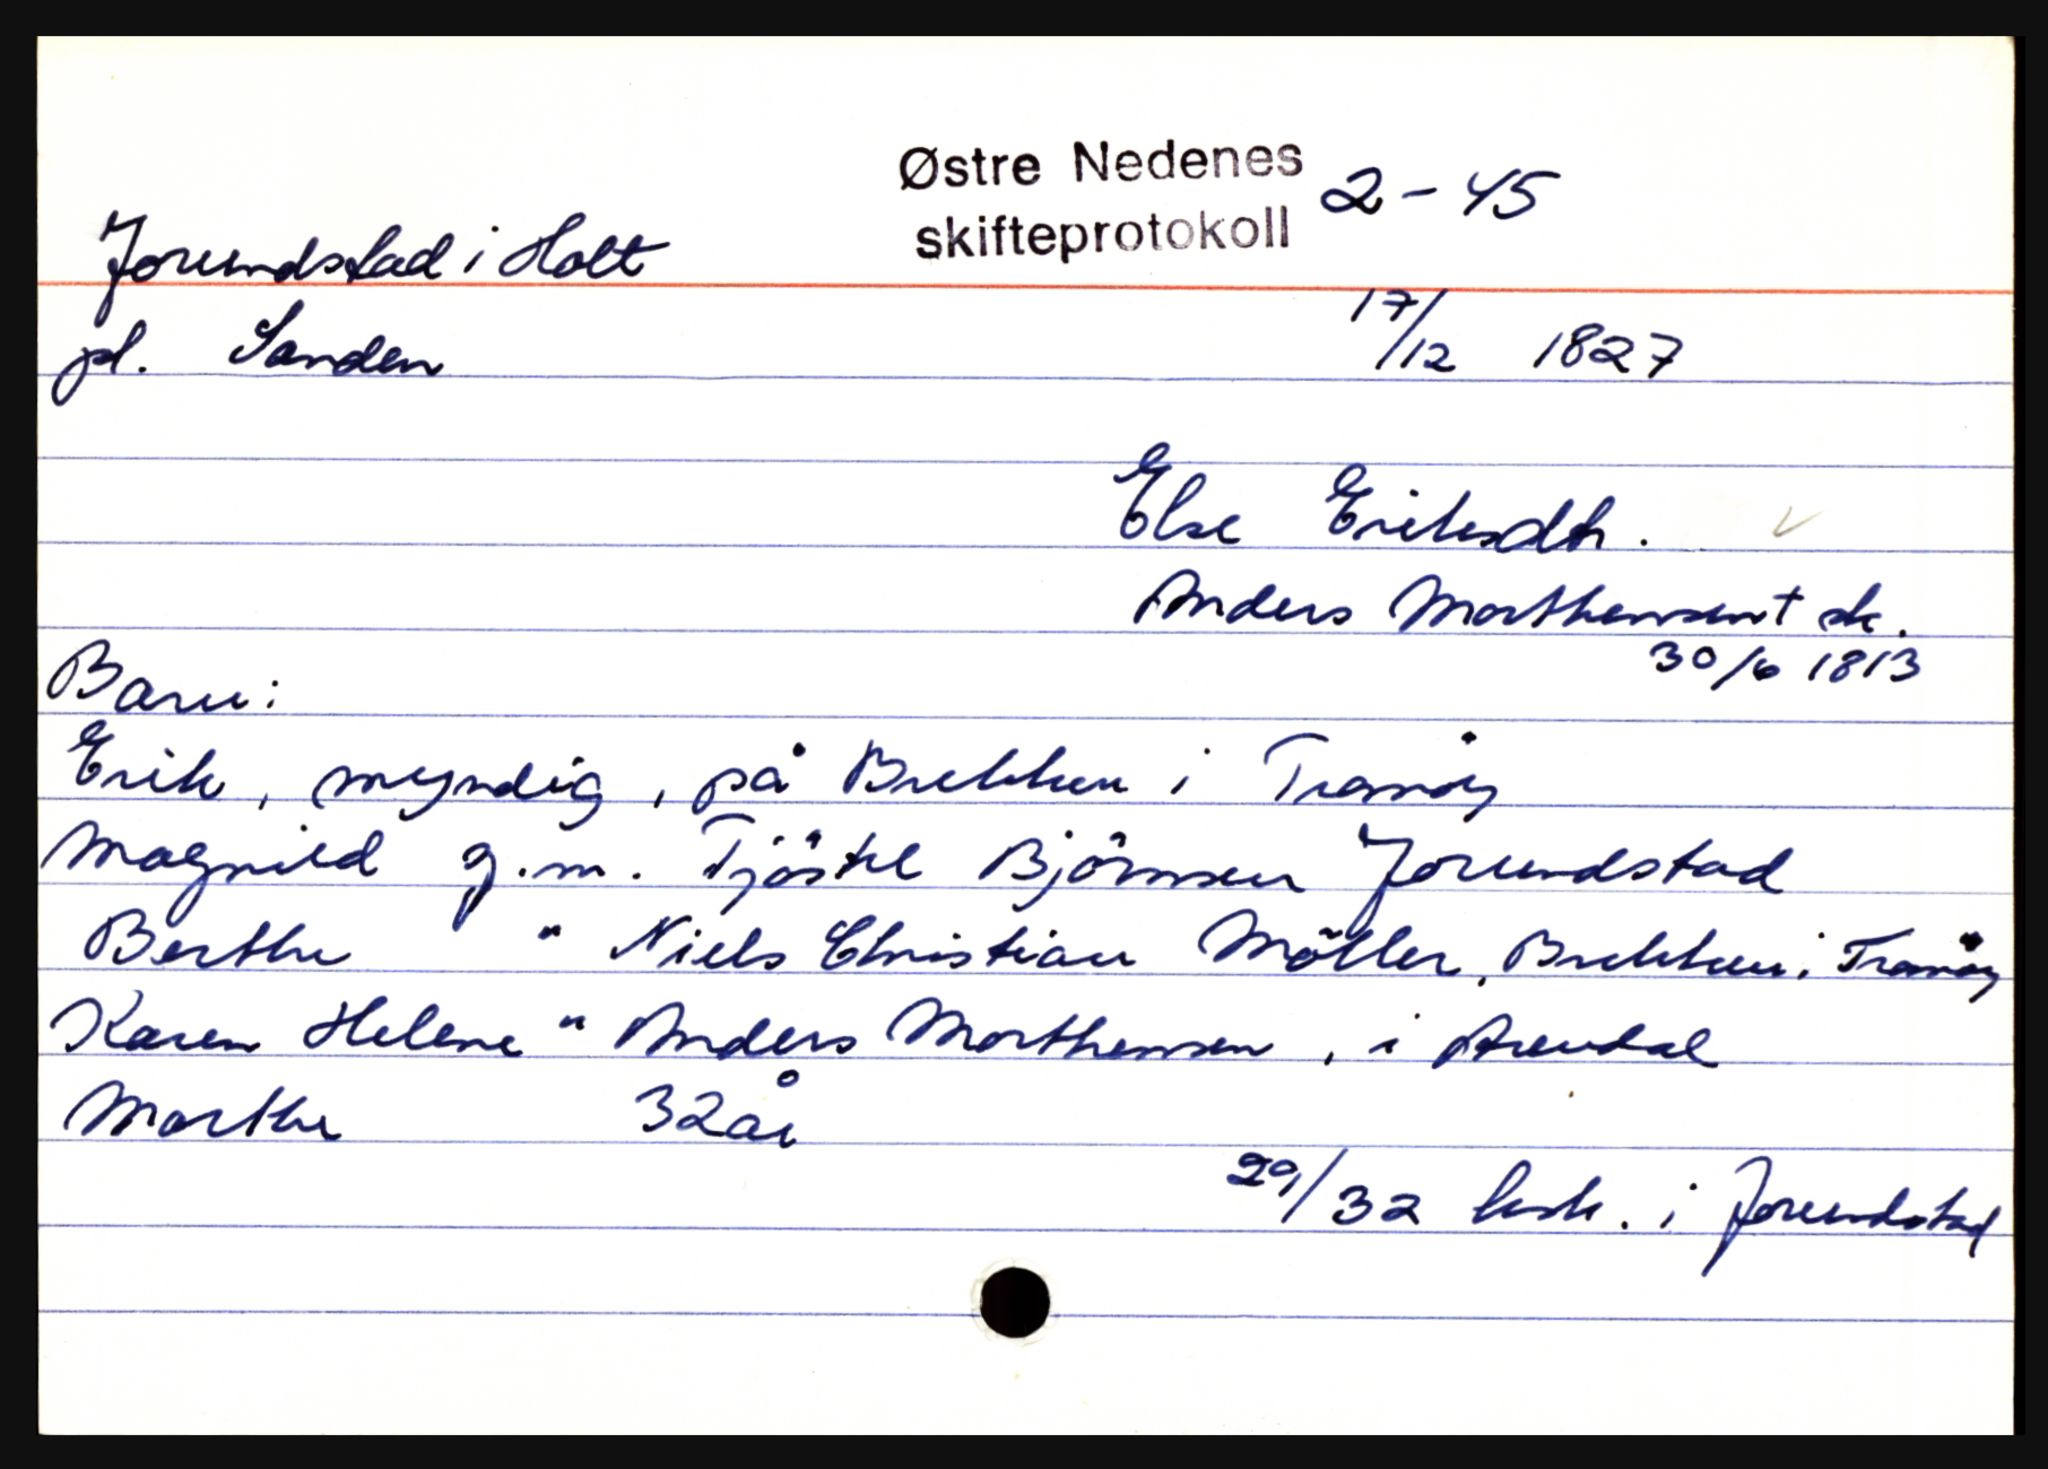 Østre Nedenes 2-45
skifteprotokoll
Jorundstad i Holt
pl. Sanden 17/12 1827
Else Eriksdtr.
Anders Morthensen + sk.
30/6 1813
Barn:
Erik, myndig, på Brekken i Tromöy
Magnild g.m. Tjöstel Björnsen Jorundstad
Berthe " Niels Christian Möller, Brekken i Tromöy
Karen Helene " Anders Morthensen, i Arendal
Marthe 32 år
29/32 besk. i Jorundstad